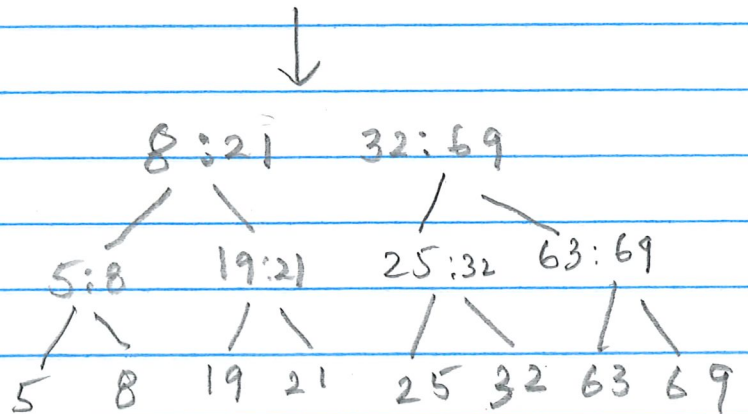 8:21 32:69
5:8 19:21 25:32 63:69
5 8 19 21 25 32 63 69